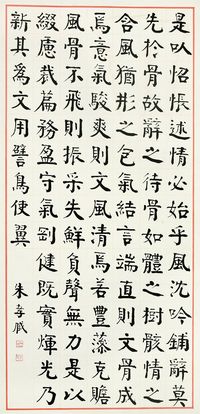 是以怊悵述情必始乎風沈吟鋪辭莫
先於骨故辭之待骨如體之樹骸情之
含風猶形之包氣結言端直則文骨成
焉意氣駿爽則文風清焉若豐藻克贍
風骨不飛則振采失鮮負聲無力是以
綴慮裁篇務盈守氣剛健既實輝光乃
新其爲文用譬鳥使翼
朱孝臧